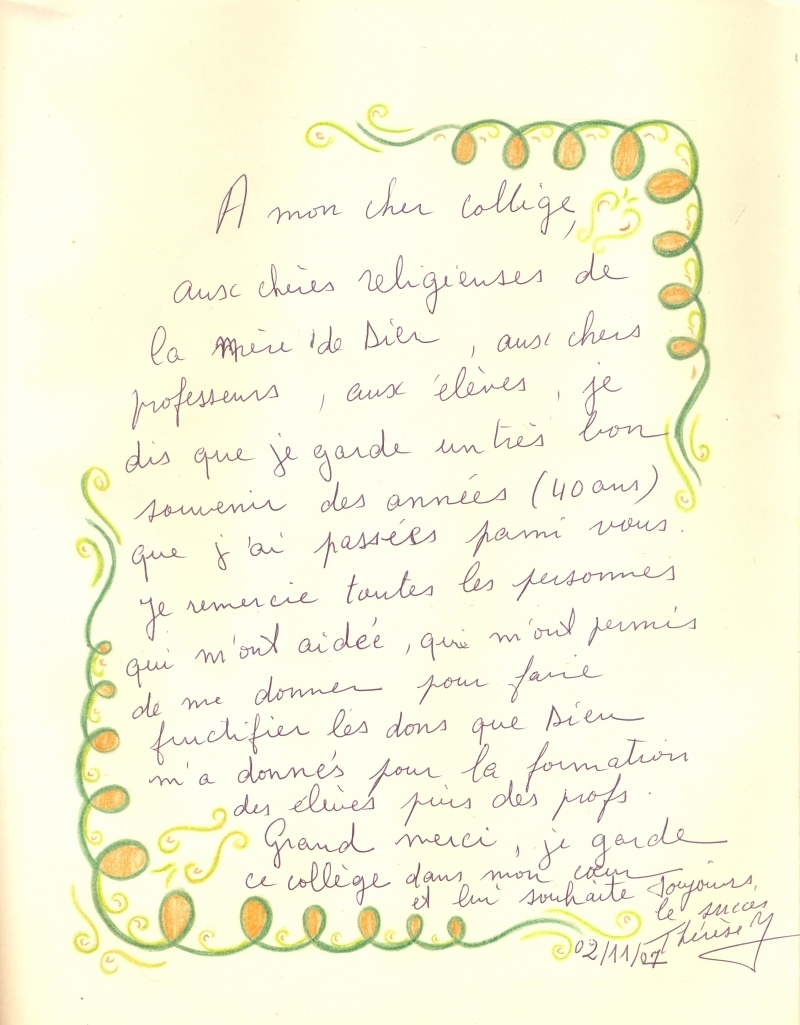 A mon cher collège,
aux chères religieuses de
la Mère de Dieu, aux chers
professeurs, aux élèves, je
dis que je garde un très bon
souvenir des années (40 ans)
que j'ai passées parmi vous.
Je remercie toutes les personnes
qui m'ont aidée, qui m'ont permis
de me donner pour faire
fructifier les dons que Dieu
m'a donnés pour la formation
des élèves puis des profs.
Grand merci, je garde
ce collège dans mon cœur
et lui souhaite toujours,
le succès
Thérèse
02/11/07